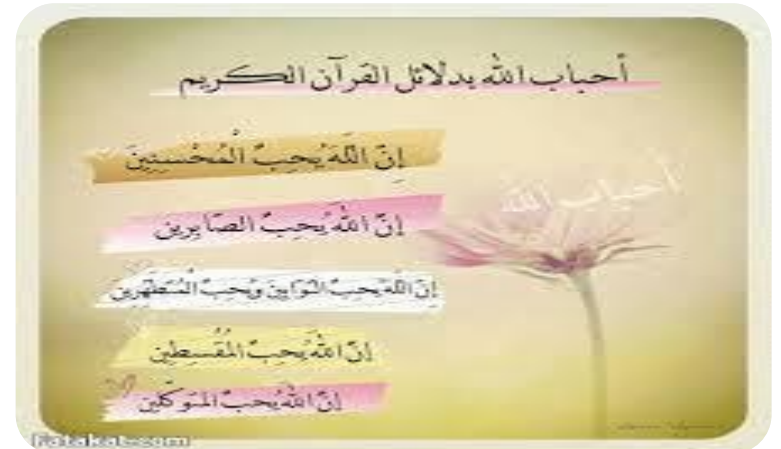 أحباب الله بدلائل القرآن الكريم
إنّ اللّهَ يُحِبّ الْمُحْسِنِينَ
أحباب الله
إنّ اللهَ يُحِبّ الصّابِرِين
إنّ اللّهَ يُحِبّ التّوّابِينَ وَيُحِبّ الْمُتَطَهّرِين
إنّ اللهَ يُحِبّ الْمُقْسِطِين
إنّ اللهَ يُحِبّ المتَوَكّلين
Fatakat.com